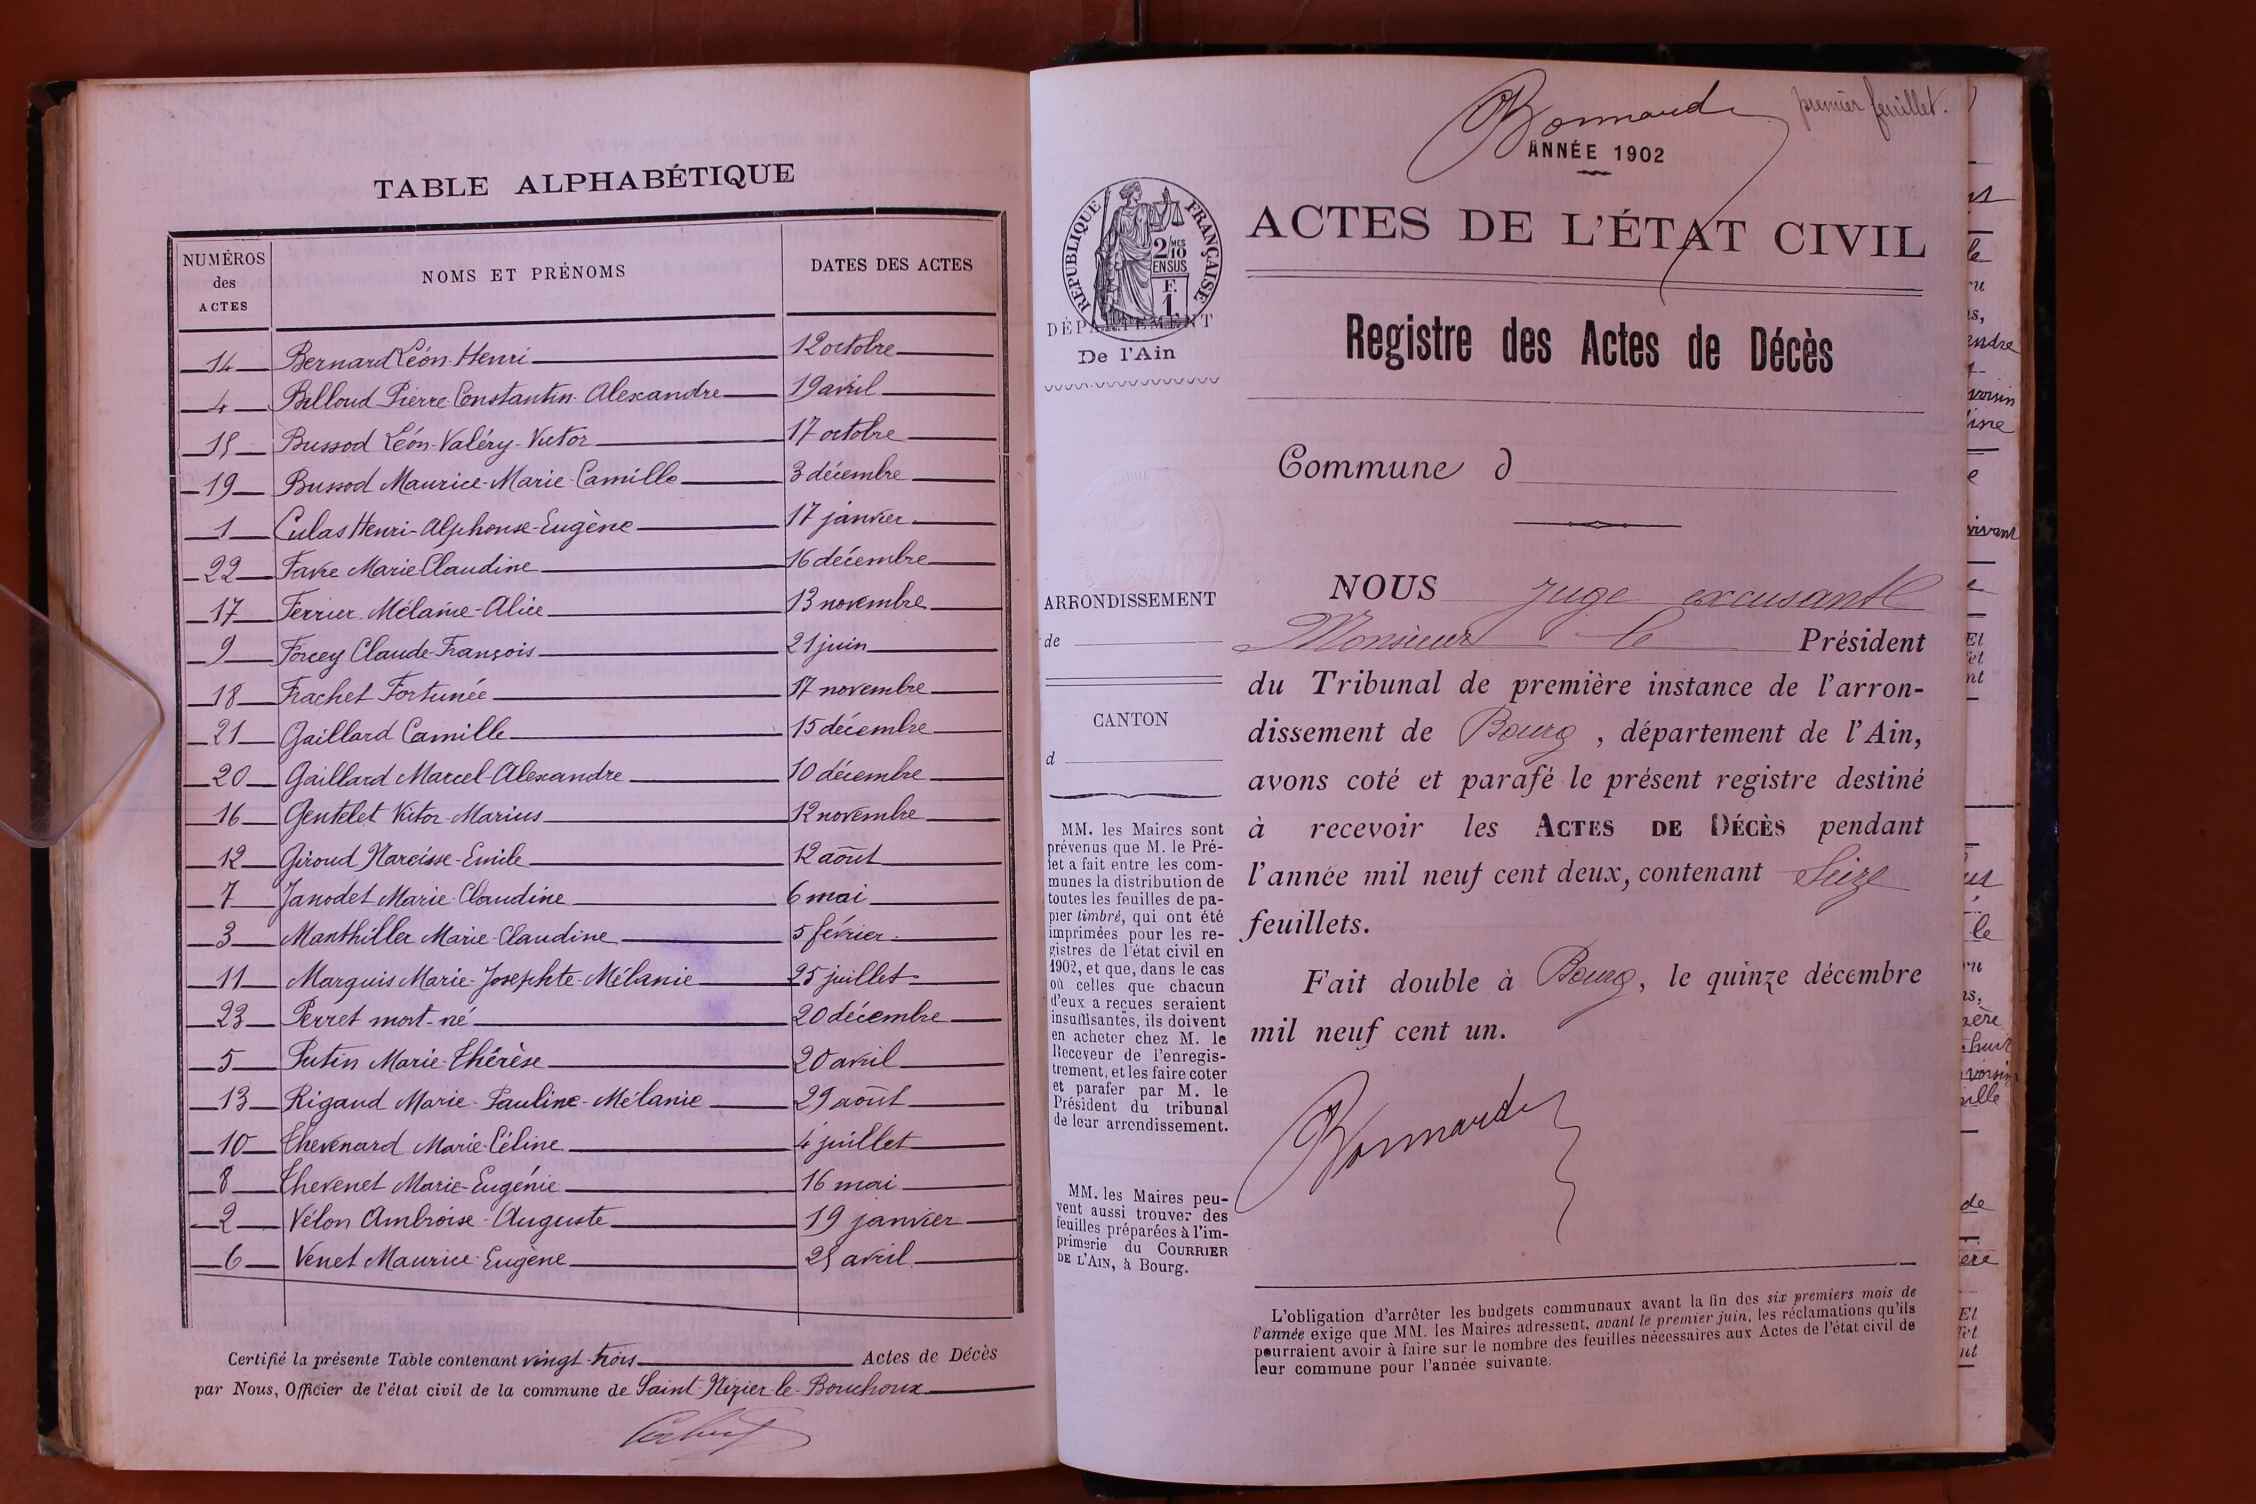 TABLE ALPHABÉTIQUE
NUMÉROS des ACTES NOMS ET PRÉNOMS DATES DES ACTES
14 Bernard Léon-Henri 12 octobre
4 Billoud Pierre-Constantin-Alexandre 19 avril
15 Bussod Léon-Valéry-Victor 17 octobre
19 Bussod Maurice-Marie-Camille 3 décembre
1 Culas Henri-Alphonse-Eugène 17 janvier
22 Favre Marie Claudine 16 décembre
17 Ferrier Mélanie-Alice 13 novembre
9 Forcey Claude-François 21 juin
18 Frachet Fortunée 17 novembre
21 Gaillard Camille 15 décembre
20 Gaillard Marcel-Alexandre 10 décembre
16 Gentelet Victor-Marius 12 novembre
12 Giroud Narcisse-Emile 12 août
7 Janodet Marie-Claudine 6 mai
3 Manthiller Marie-Claudine 5 février
11 Marguis Marie-Josephte-Mélanie 25 juillet
23 Perret mort-né 20 décembre
5 Putin Marie-Thérèse 20 avril
13 Rigaud Marie-Pauline-Mélanie 29 août
10 Thevenard Marie-Céline 4 juillet
8 Thevenet Marie-Eugénie 16 mai
2 Vélon Ambroise-Auguste 19 janvier
6 Venet Maurice-Eugène 25 avril
Certifié la présente Table contenant vingt-trois Actes de Décès
par Nous, Officier de l'état civil de la commune de Saint-Nizier-le-Bouchoux
Bonnard premier feuillet.
ANNÉE 1902
RÉPUBLIQUE FRANÇAISE
2/10 MES
EN SUS
F.
1
DÉPARTEMENT
De l'Ain
ACTES DE L'ÉTAT CIVIL
Registre des Actes de Décès
Commune d
ARRONDISSEMENT
de
CANTON
d
MM. les Maires sont
prévenus que M. le Pré-
fet a fait entre les com-
munes la distribution de
toutes les feuilles de pa-
pier timbré, qui ont été
imprimées pour les re-
gistres de l'état civil en
1902, et que, dans le cas
où celles que chacun
d'eux a reçues seraient
insuffisantes, ils doivent
en acheter chez M. le
Receveur de l'enregis-
trement, et les faire coter
et parafer par M. le
Président du tribunal
de leur arrondissement.
MM. les Maires peu-
vent aussi trouver des
feuilles préparées à l'im-
primerie du COURRIER
DE L'AIN, à Bourg.
NOUS Juge excusant
Monsieur le Président
du Tribunal de première instance de l'arron-
dissement de Bourg, département de l'Ain,
avons coté et parafé le présent registre destiné
à recevoir les ACTES DE DÉCÈS pendant
l'année mil neuf cent deux, contenant Seize
feuillets.
Fait double à Bourg, le quinze décembre
mil neuf cent un.
Bonnard
L'obligation d'arrêter les budgets communaux avant la fin des six premiers mois de
l'année exige que MM. les Maires adressent, avant le premier juin, les réclamations qu'ils
pourraient avoir à faire sur le nombre des feuilles nécessaires aux Actes de l'état civil de
leur commune pour l'année suivante.